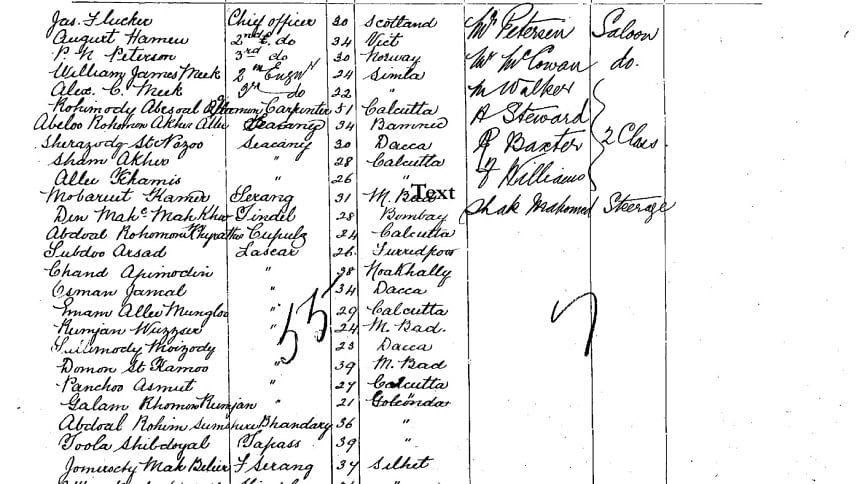 Jas. Flucker Chief officer 30 Scotland Mr Petersen Saloon
August Hamen 2nd do 34 Vict Mr McCowan do.
P. N. Peterson 3rd do 30 Norway
William James Meek 2nd Engnr 24 Simla M Walker
Alex. C. Meek 3rd do 22 "
Rohimody Abesoal Carpenter 51 Calcutta A Steward
Abeloo Rohomon Akher Allee Seacang 34 R Baxter 2 Class
Sherazody St Nozoo Seacany 30 Dacca
Sham Akher " 28 Calcutta
Allee Khamis " 26 " Williams
Mobaruct Hamer Serang 31 M. Bad Text Shak Mahomed Steerage
Din Mahc Mahkhw Tindil 28 Bombay
Abdoal Rohomon 24 Calcutta
Subdoo Arsad Lascar 26 Furridpow
Chand Apimodin " 38 Noakhally
Osman Jamal " 34 Dacca
Emam Allee Mungloo " 29 Calcutta
Rumjan Wuzzer " 24 M. Bad.
Moizody " 23 Dacca
Domon St Kamoo " 39 M. Bad
Panchoo Asmut " 27 Calcutta
Galam Rhomon Rumjan " 21 Golconda
Abdoal Rohim Bhandary 36 "
Toola Shibdoyal Tapass 39 "
Mah Belier F Serang 37 Silhet
55
7